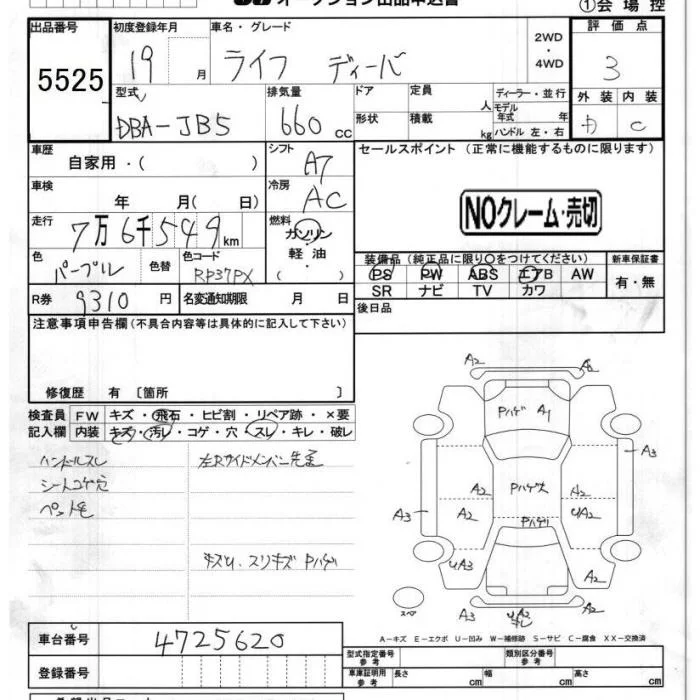 オークション出品申込書
①会場控
出品番号
5525
初度登録年月
19 月
車名・グレード
ライフ ディーバ
2WD
・
4WD
評価点
3
型式
DBA-JB5
排気量
660 cc
ドア
形状
定員 人
積載 kg
ディーラー・並行
モデル年式 年
ハンドル 左・右
外装 内装
C
車歴
自家用・( )
シフト
A7
セールスポイント (正常に機能するものに限ります)
NOクレーム・売切
車検
年 月( 日)
冷房
AC
走行
7万6千549km
燃料
ガソリン
・
軽油
・
( )
色
パープル
色替
色コード
RP37PX
装備品 (純正品に限り○をつけてください)
PS PW ABS エアB AW
SR ナビ TV カワ
新車保証書
有・無
R券 9310 円
名変通知期限 月 日
後日品
注意事項申告欄(不具合内容等は具体的に記入して下さい)
修復歴 有 〔箇所 〕
検査員記入欄
FW キズ・飛石・ヒビ割・リペア跡・×要
内装 キズ・汚レ・コゲ・穴・スレ・キレ・破レ
ハンドルスレ
シートコゲ穴
ペット毛
左Rサイドメンバー先歪
キズU、スリキズ Pハゲ
A2
Pハゲ A1
A3
A2 Pハゲ大 A2
A3 A2 UA2
Pハゲ
UA3 A2
スペア A3 UA2
A2
A－キズ E－エクボ U－凹み W－補修跡 S－サビ C－腐食 XX－交換済
車台番号
4725620
登録番号
型式指定番号 参考
類別区分番号 参考
車庫証明用 参考
長さ cm 幅 cm 高さ cm